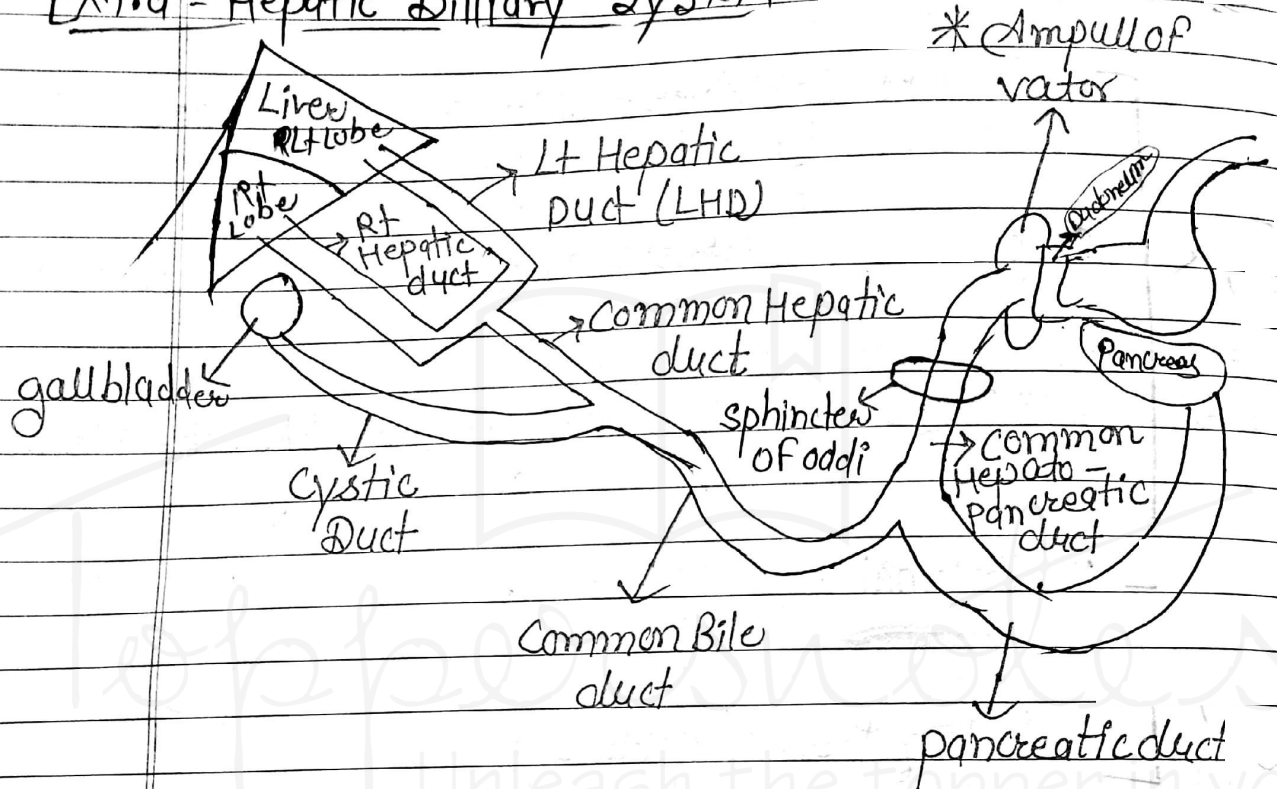 Extra - Hepatic Billiary System
* Ampull of
vator
Liver
Lt Lobe
Rt
Lobe
Lt Hepatic
Duct (LHD)
Rt
Hepatic
duct
Duodneum
Common Hepatic
duct
Pancreas
gallbladder
sphincter
of oddi
Common
Hepato -
pancreatic
duct
Cystic
Duct
Common Bile
duct
pancreatic duct
Toppersnotes
Unleash the topper in yo